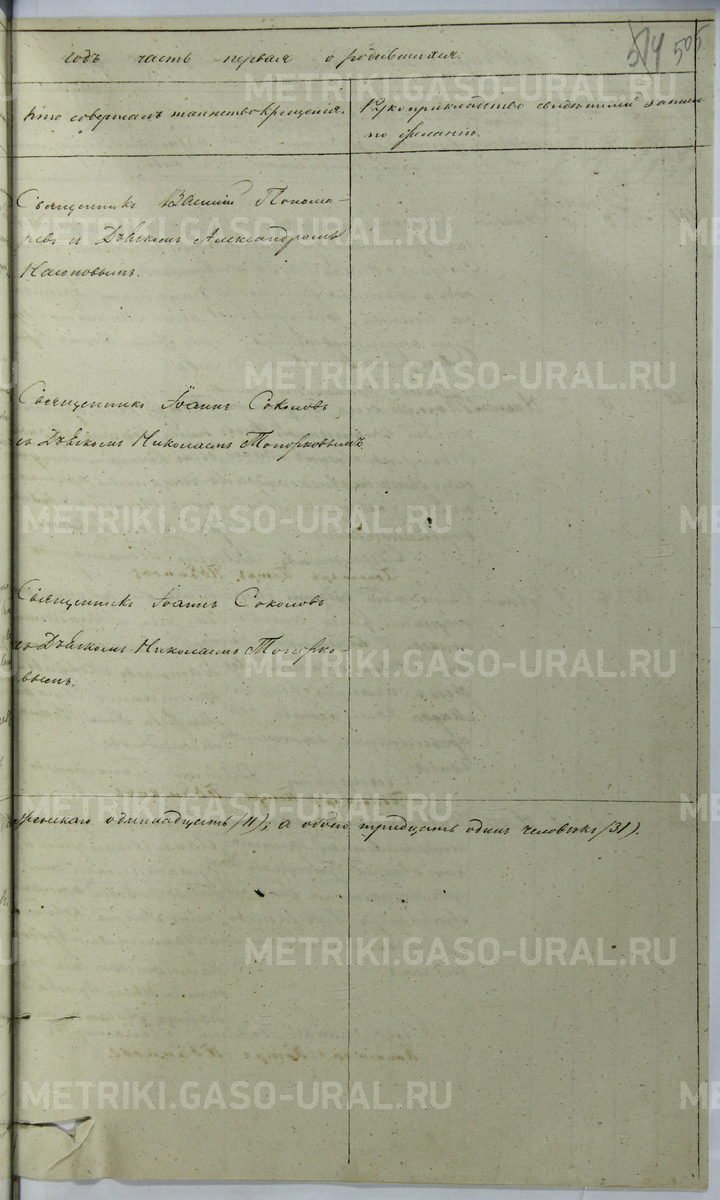 годъ часть первая о родившихся.
514 505
Кто совершалъ таинство крещенія.
Рукоприкладство свидѣтелей записи
по желанію.
Священникъ Василій Понома-
ревъ съ Дьякономъ Александромъ
METRIKI.GASO-URAL.RU
METRIKI.GASO-URAL.RU
Священникъ Іоаннъ Соколовъ
съ Дьякономъ Николаемъ Топорковымъ
METRIKI.GASO-URAL.RU
Священникъ Іоаннъ Соколовъ
съ Дьякономъ Николаемъ Топорко-
METRIKI.GASO-URAL.RU
вымъ.
METRIKI.GASO-URAL.RU
женскаго одиннадцать (11); а обоего тридцать одинъ человѣкъ (31).
METRIKI.GASO-URAL.RU
METRIKI.GASO-URAL.RU